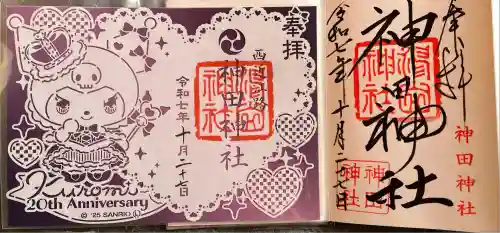 奉拝
西近江路
神田神社
令和七年 十月二十七日
Kuromi
20th Anniversary
© '25 SANRIO Ⓛ
奉拝
神田神社
令和七年 十月二七日
神田神社
神田
神社